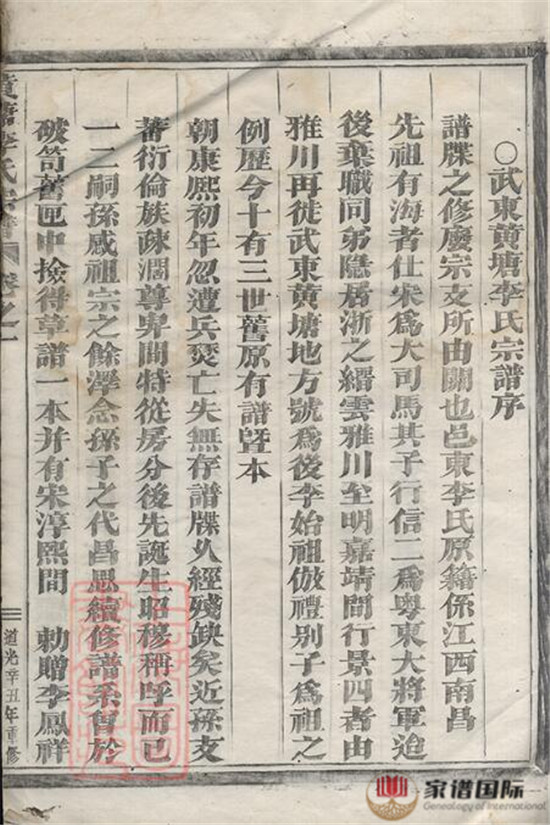 ○武東黄塘李氏宗譜序
譜牒之修廢宗支所由關也邑東李氏原籍係江西南昌
先祖有海者仕宋爲大司馬其子行信二爲粤東大將軍迨
後棄職同弟隱居浙之縉雲雅川至明嘉靖間行景四者由
雅川再徙武東黄塘地方號爲後李始祖倣禮别子爲祖之
例歴今十有三世舊原有譜暨本
朝康熙初年忽遭兵燹亡失無存譜牒久經殘缺矣近孫支
蕃衍倫族疎濶尊卑間特從房分後先誕生昭穆稱呼而已
一二嗣孫感祖宗之餘澤念孫子之代昌思續修譜系曾於
破笥舊匣中撿得草譜一本并有宋淳熙間 勅贈李鳳祥
黄塘李氏宗譜 卷之一
道光辛丑年重修
家谱国际
Genealogy of International